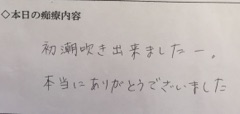 ◇本日の痴療内容
初潮吹き出来ましたー。
本当にありがとうございました